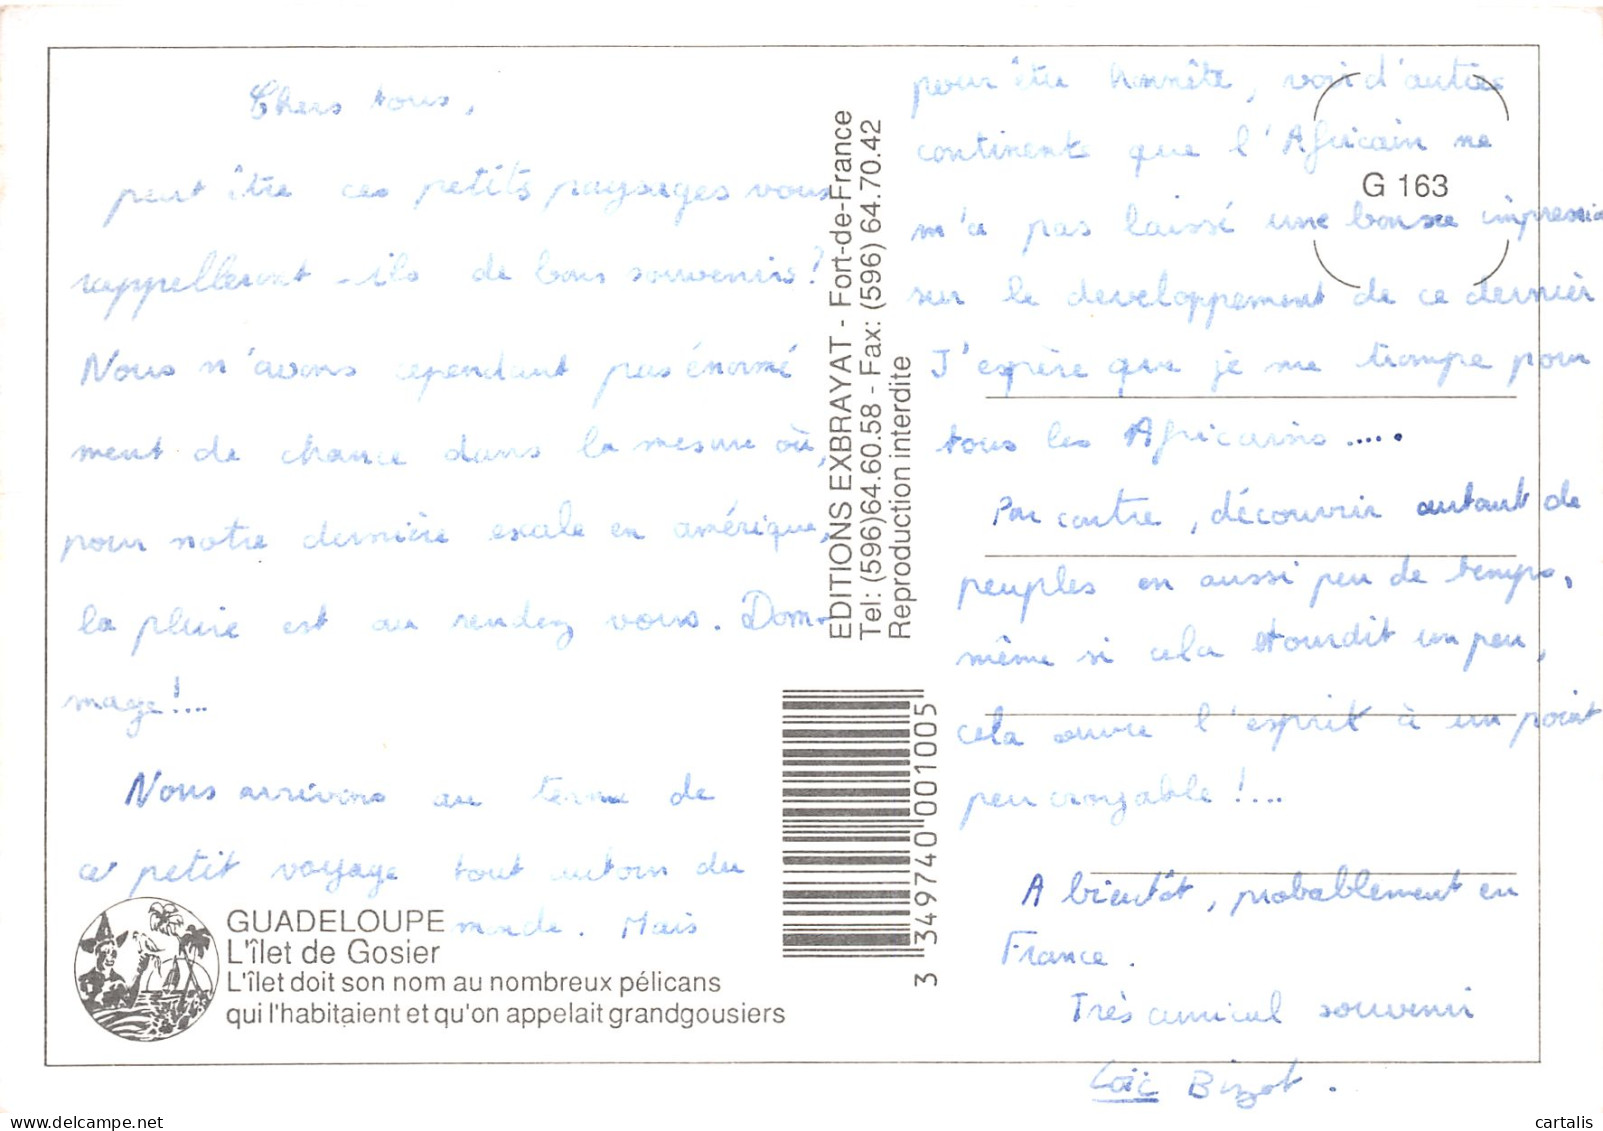 Chers tous,
peut être ces petits paysages vous
rappelleront-ils de bons souvenirs ?
Nous n'avons cependant pas énormé
ment de chance dans la mesure où,
pour notre dernière escale en amérique,
la pluie est au rendez vous. Dom-
mage !....
Nous arrivons au terme de
ce petit voyage tout autour du
monde. Mais
GUADELOUPE
L'îlet de Gosier
L'îlet doit son nom au nombreux pélicans
qui l'habitaient et qu'on appelait grandgousiers
EDITIONS EXBRAYAT - Fort-de-France
Tel: (596)64.60.58 - Fax: (596) 64.70.42
Reproduction interdite
3 349740 001005
G 163
pour être honnête, voir d'autres
continents que l'Africain ne
m'a pas laissé une bonne impression
sur le developpement de ce dernier
J'espère que je me trompe pour
tous les Africains .....
Par contre, découvrir autant de
peuples en aussi peu de temps,
même si cela étourdit un peu,
cela ouvre l'esprit à un point
peu croyable !....
A bientôt, probablement en
France.
Très amical souvenir
Loïc Bizot.
cartalis